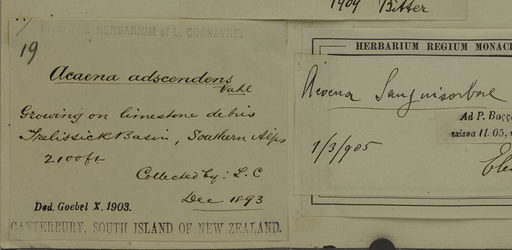 1904 Bitter
From THE HERBARIUM of L. COCKAYNE.
19
Acaena adscendens
Vahl
Growing on limestone debris
Trelissick Basin, Southern Alps
2100ft
Collected by: L. C
Dec 1893
Ded. Goebel X. 1903.
CANTERBURY, SOUTH ISLAND OF NEW ZEALAND.
HERBARIUM REGIUM MONAC
Acaena Sanguisorbae
Ad P. Bagg
missa II. 05,
1/3/905